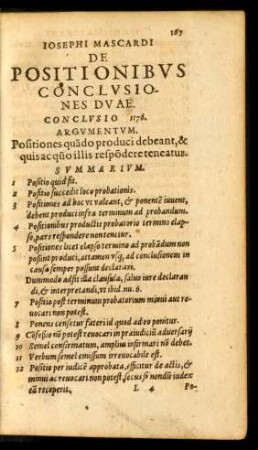 167
IOSEPHI MASCARDI
DE
POSITIONIBVS
CONCLVSIO-
NES DVAE.
CONCLVSIO 1176.
ARGVMENTVM.
Positiones quãdo produci debeant, &
quis ac q̃uo illis respõdere teneatur.
SVMMARIVM.
1 Positio quid sit.
2 Positio succedit loco probationis.
3 Positiones ad hoc vt valeant, & ponentẽ iuuent,
debent produci infra terminum ad probandum.
4 Positionibus productis probatorio termino elap-
so, pars respondere non tenetur.
5 Positiones licet elapso termino ad probãdum non
possint produci, attamen vsq; ad conclusionem in
causa semper possunt declarari.
Dummodo adsit illa clausula, saluo iure declaran
di, & interpretandi, vt ibid. nu. 6.
7 Positio post terminum probatorium minui aut re-
uocari non potest.
8 Ponens censetur fateri id quod ab eo ponitur.
9 Cõfessio nõ potest reuocari in præiudiciũ aduersarij
10 Semel confirmatum, amplius infirmari nõ debet.
11 Verbum semel emissum irreuocabile est.
12 Positio per iudicẽ approbata, efficitur de actis, &
minui ac reuocari non potest, secus si nondũ iudex
eã receperit.
L 4 Po-